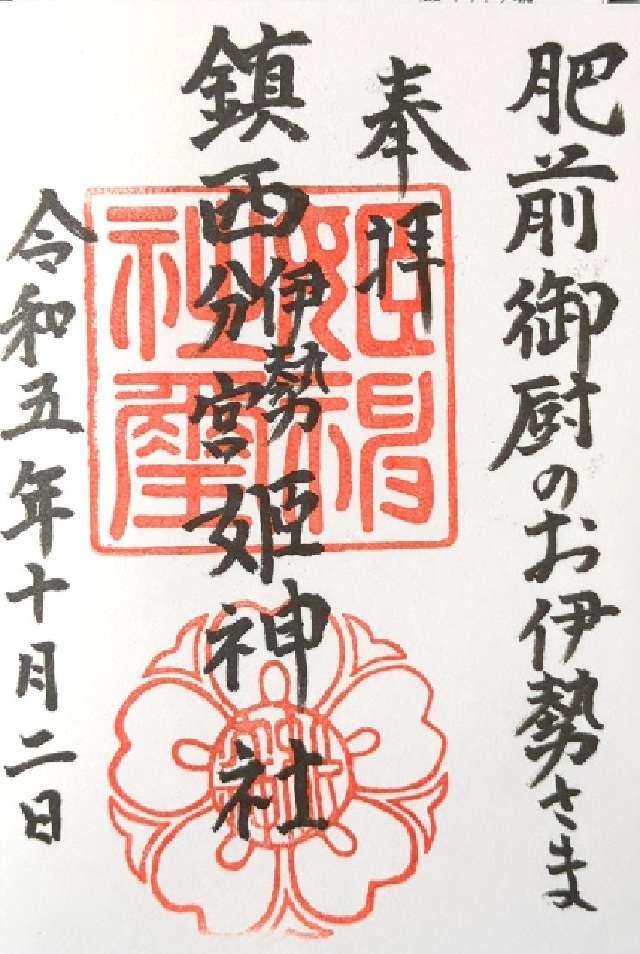 肥前御厨のお伊勢さま
奉拝
鎮西伊勢分宮姫神社
令和五年十月二日